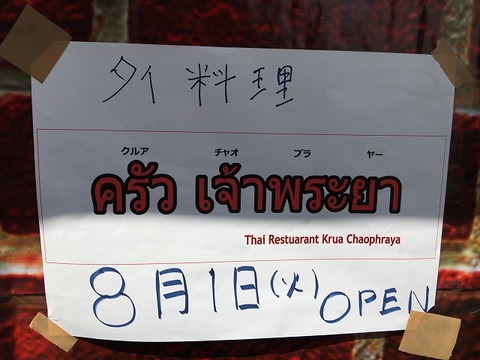 タイ料理
クルア チャオ プラ ヤー
ครัว เจ้าพระยา
Thai Restuarant Krua Chaophraya
8月1日(火) OPEN